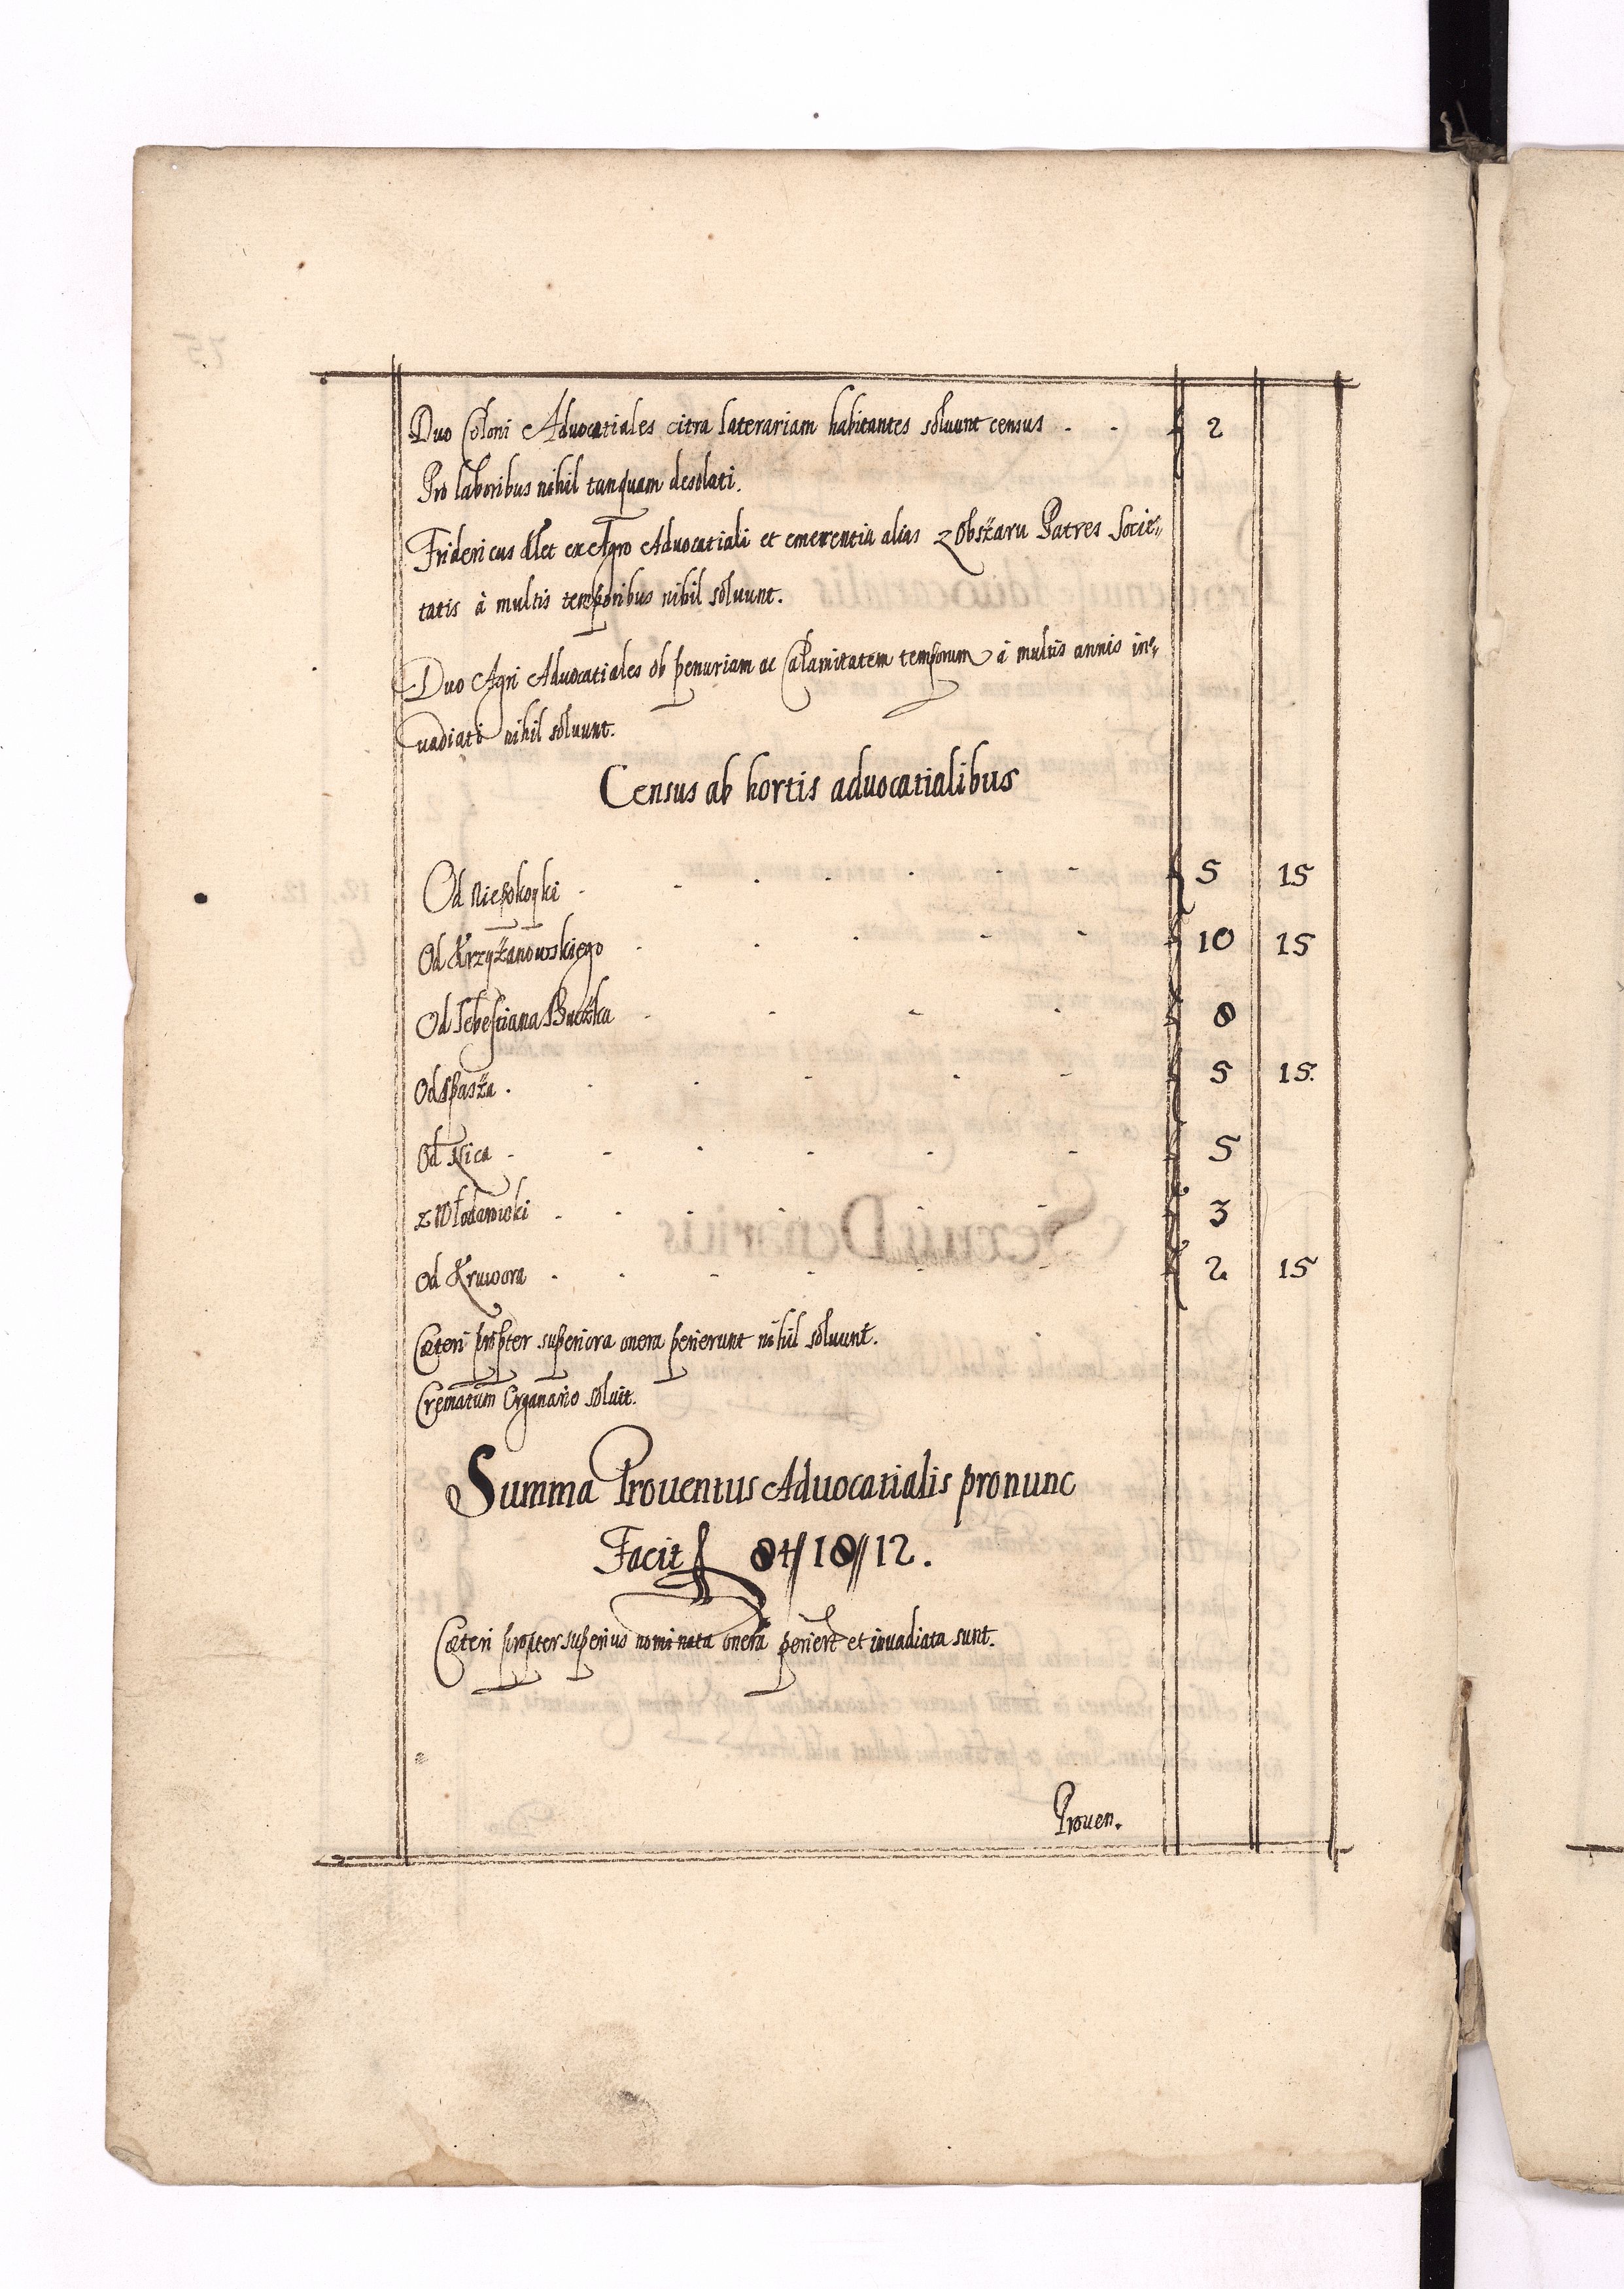 Duo Coloni Advocatiales citra laterariam habitantes soluunt census . . f 2
Pro laboribus nihil tanquam desolati.
Fridericus Alet ex Agro Advocatiali et emerentia alias z Obszaru Patres Socie-
tatis à multis temporibus nihil soluunt.
Duo Agri Advocatiales ob penuriam ac Calamitatem temporum à multis annis in-
uadiati nihil soluunt.
Census ab hortis aduocatialibus
Od Niepokoyki f 5 15
Od Krzyżanowskiego f 10 15
Od Sebestiana Buczka f 8
Od Spasza f 5 15.
Od Nica f 5
z Włodawski f 3
Od Kruwora f 2. 15
Cæteri propter superiora onera perierunt nihil soluunt.
Crematum Organario soluit.
Summa Prouentus Advocatialis pronunc
Facit f 84//18//12.
Cæteri propter superius nominata onera periert et inuadiata sunt.
Prouen.